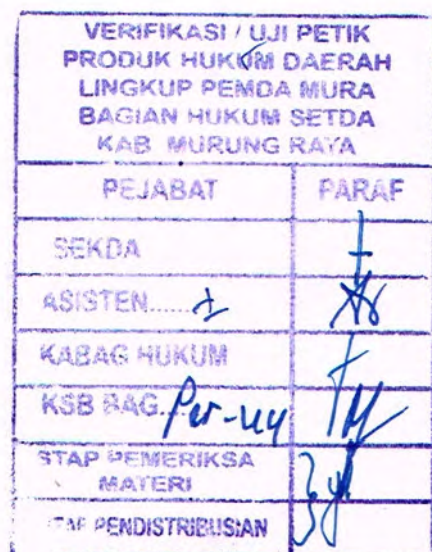 VERIFIKASI / UJI PETIK
PRODUK HUKUM DAERAH
LINGKUP PEMDA MURA
BAGIAN HUKUM SETDA
KAB MURUNG RAYA
PEJABAT PARAF
SEKDA
ASISTEN.......I
KABAG HUKUM
KSB BAG... Per-uu
STAP PEMERIKSA
MATERI
PENDISTRIBUSIAN